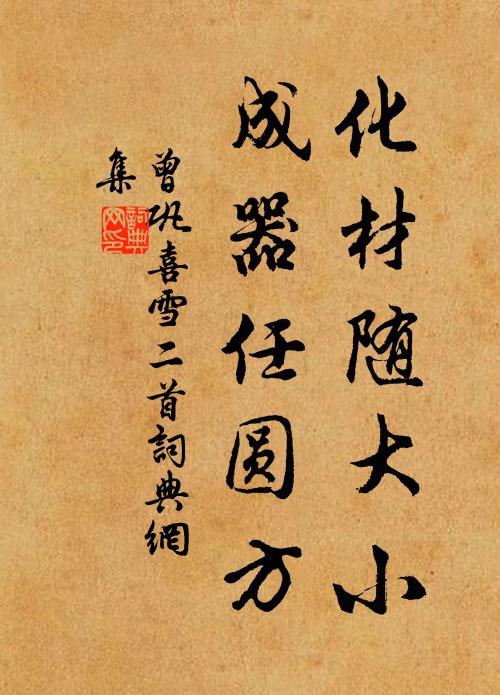 化材随大小
成器任圆方
曾巩喜雪二首詞典網
集
詞典
网印